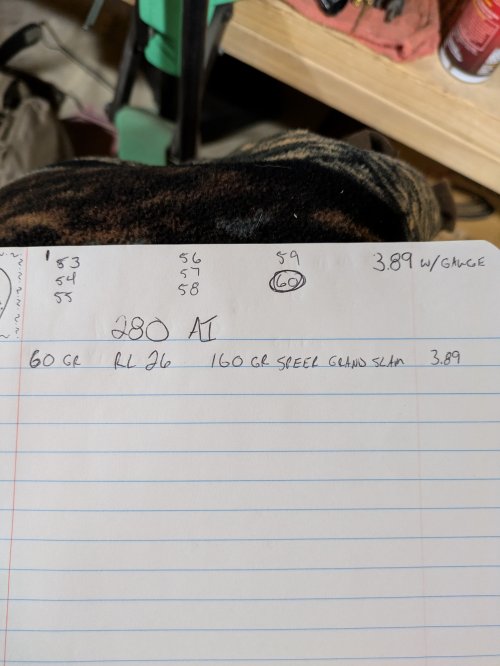 53 56 59 3.89 W/ GAUGE
54 57 60
55 58
280 AI
60 GR RL 26 160 GR SPEER GRAND SLAM 3.89